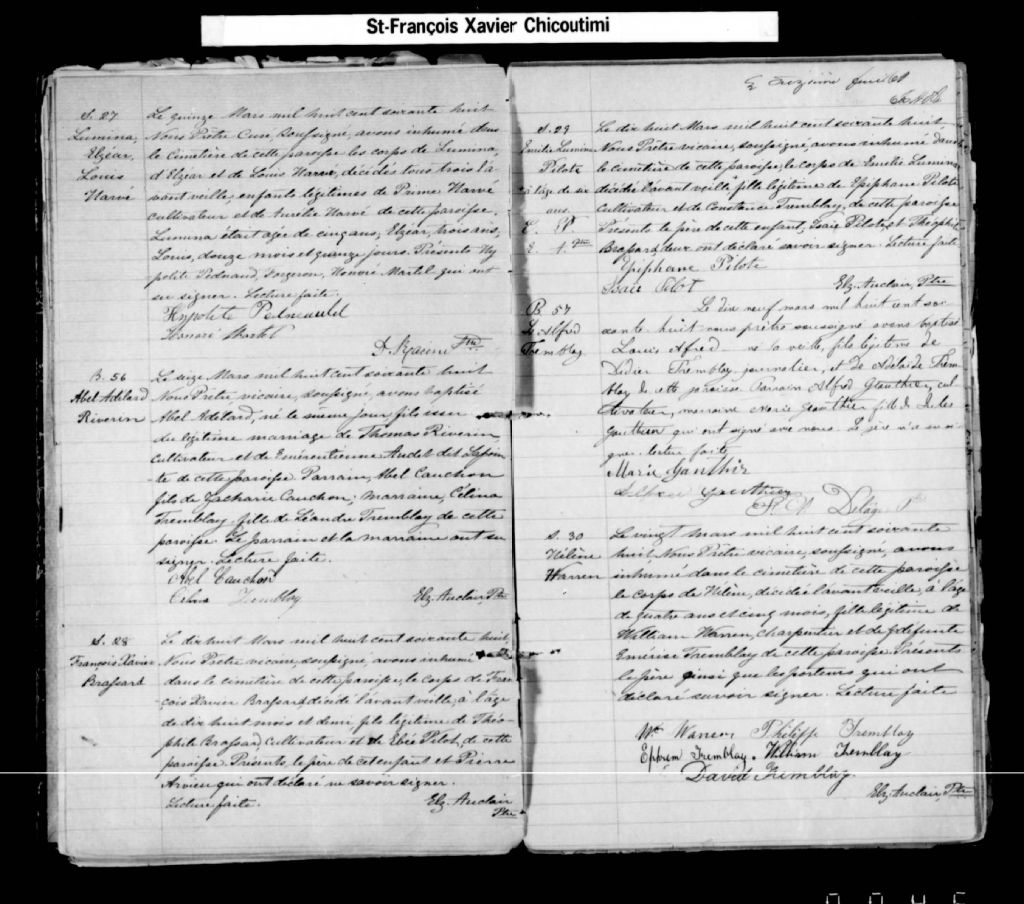 St-François Xavier Chicoutimi
S. 27
Lumina,
Elzéar,
Louis
Harvé
Le quinze Mars mil huit cent soixante huit
Nous Prêtre Curé, soussigné, avons inhumé dans
le Cimetière de cette paroisse les corps de Lumina,
d'Elzéar et de Louis Harvé, décédés tous trois l'a-
vant veille, enfants légitimes de Prime Harvé
cultivateur et de Aurélie Harvé de cette paroisse.
Lumina était agée de cinq ans, Elzéar, trois ans,
Louis, douze mois et quinze jours. Présents Hy-
polite Pedneaud, forgeron, Honoré Martel qui ont
su signer. Lecture faite.
Hypolite Pedneauld
Honoré Martel
D. Racine Ptre
B. 56
Abel Adélard
Riverin
Le seize Mars mil huit cent soixante huit
Nous Prêtre vicaire, soussigné, avons baptisé
Abel Adélard, né le même jour, fils issu
du légitime marriage de Thomas Riverin,
cultivateur et de Emérentienne Audet dit Lapoin-
te de cette paroisse. Parrain, Abel Cauchon
fils de Zacharie Cauchon; marraine, Célina
Tremblay, fille de Léandre Tremblay de cette
paroisse. Le parrain et la marraine ont su
signer. Lecture faite.
Abel Cauchon
Celina Tremblay
Elz. Auclair, Ptre
S. 28
François Xavier
Brassard
Le dix huit Mars mil huit cent soixante huit,
Nous Prêtre vicaire, soussigné, avons inhumé
dans le cimetière de cette paroisse, le corps de Fran-
çois Xavier Brassard, décédé l'avant veille, à l'âge
de dix huit mois et demi, fils légitime de Théo-
phile Brassard, Cultivateur et de Pilot, de cette
paroisse. Présents, le père de cet enfant et Pierre
qui ont déclaré ne savoir signer.
Lecture faite.
Elz. Auclair
Ptre
S. 29
Emélie Lumina
Pilote
à l'âge de six
ans.
E. P.
E. A. Ptre
Le dix huit Mars mil huit cent soixante huit
Nous Prêtre vicaire, soussigné, avons inhumé dans
le cimetière de cette paroisse, le corps de Emélie Lumina,
décédée l'avant veille, fille légitime de Epiphane Pilote,
Cultivateur et de Constance Tremblay, de cette paroisse
Présents le père de cette enfant, Isaïe Pilote et Théophile
Brassard, deux ont déclaré savoir signer. Lecture faite
Epiphane Pilote
Isaïe Pilot
Elz. Auclair, Ptre
B. 57
Ls Alfred
Tremblay
Le dix neuf mars mil huit cent soi-
xante huit nous prêtre soussigné avons baptisé
Louis Alfred né la veille, fils légitime de
Didier Tremblay journalier, et de Adelaide Trem-
blay de cette paroisse Parrain Alfred Gauthier, cul-
tivateur, marraine Marie Gauthier fille de Jules
Gauthier qui ont signé avec nous. Le père n'a su si-
gner. lecture faite
Marie Gauthier
Alfred Gauthier
Delâge Ptre
S. 30
Hélène
Warren
Le vingt Mars mil huit cent soixante
huit. Nous Prêtre vicaire, soussigné, avons
inhumé dans le cimetière de cette paroisse
le corps de Hélène, décédée l'avant veille, à l'âge
de quatre ans et cinq mois, fille légitime de
William Warren, charpentier et de défunte
Emérise Tremblay de cette paroisse. Présents
le père ainsi que les porteurs qui ont
déclaré savoir signer. Lecture faite
Wm Warren Philippe Tremblay
Ephrem Tremblay. William Tremblay
David Tremblay.
Elz. Auclair, Ptre